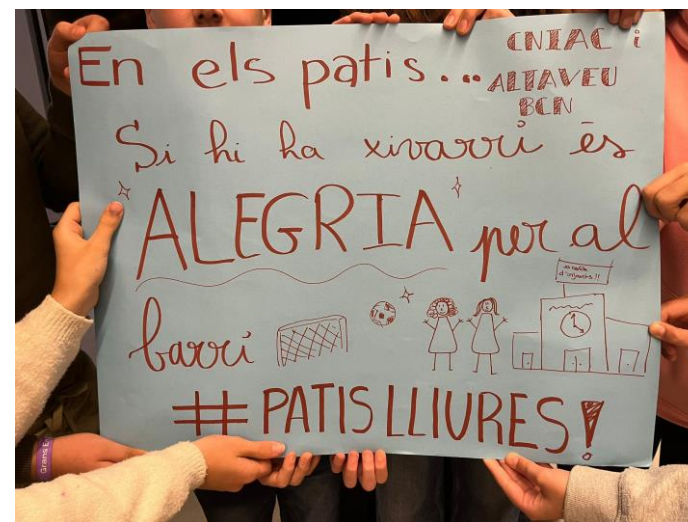 En els patis...
CNIAC i
ALTAVEU
BCN
Si hi ha xivarri és
ALEGRIA per al
barri
# PATIS LLIURES!
Grans